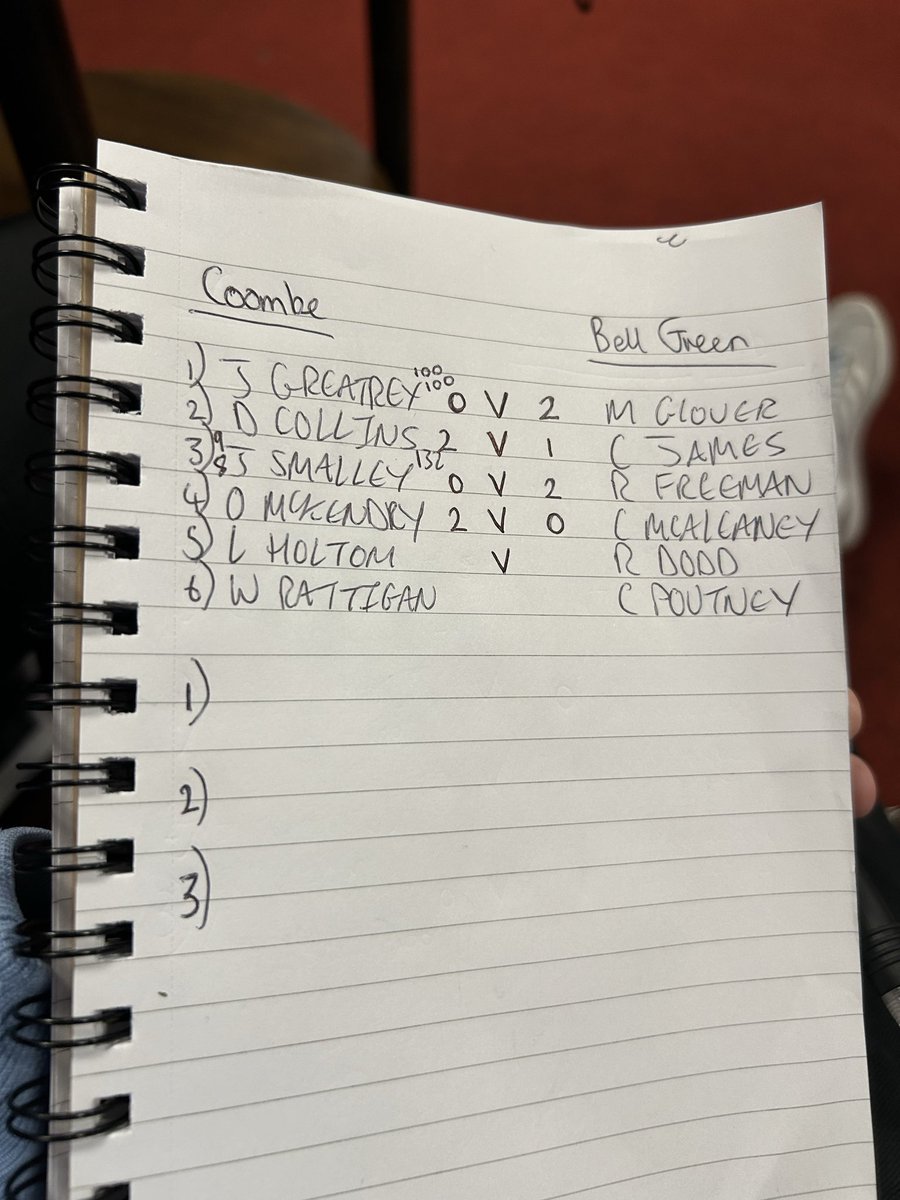 Coombe
Bell Green
100
100
1) J GREATREY 0 V 2 M GLOVER
2) D COLLINS 2 V 1 C JAMES
9
8
132
3) J SMALLEY 0 V 2 R FREEMAN
4) O MCKENDRY 2 V 0 C MCALCANEY
5) L HOLTOM V R DODD
6) W RATTIGAN C POUTNEY
1)
2)
3)